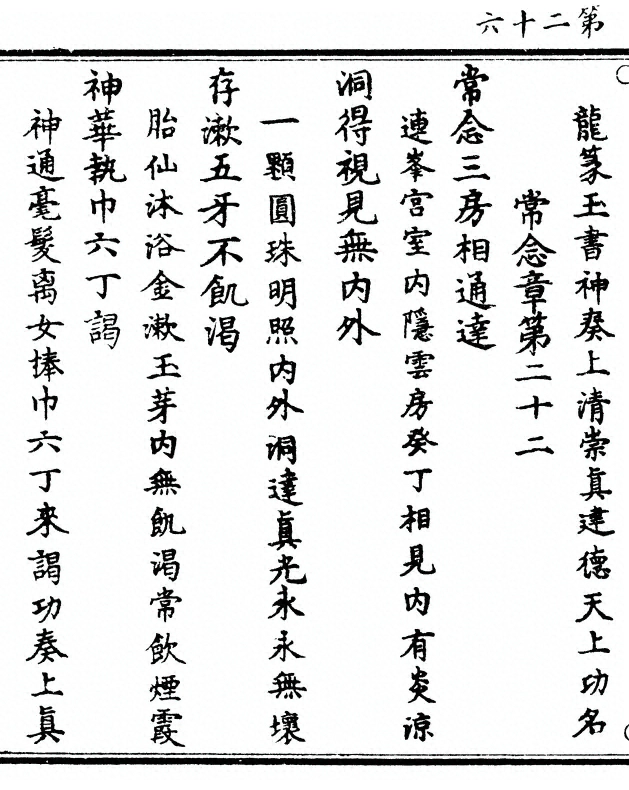 第二十六
龍篆玉書神奏上清崇眞建德天上功名
常念章第二十二
常念三房相通達
連峯宮室内隱雲房癸丁相見内有炎涼
洞得視見無内外
一顆圓珠明照内外洞達眞光永永無壞
存漱五牙不飢渴
胎仙沐浴金漱玉芽内無飢渴常飲煙霞
神華執巾六丁謁
神通毫髮离女捧巾六丁來謁功奏上眞